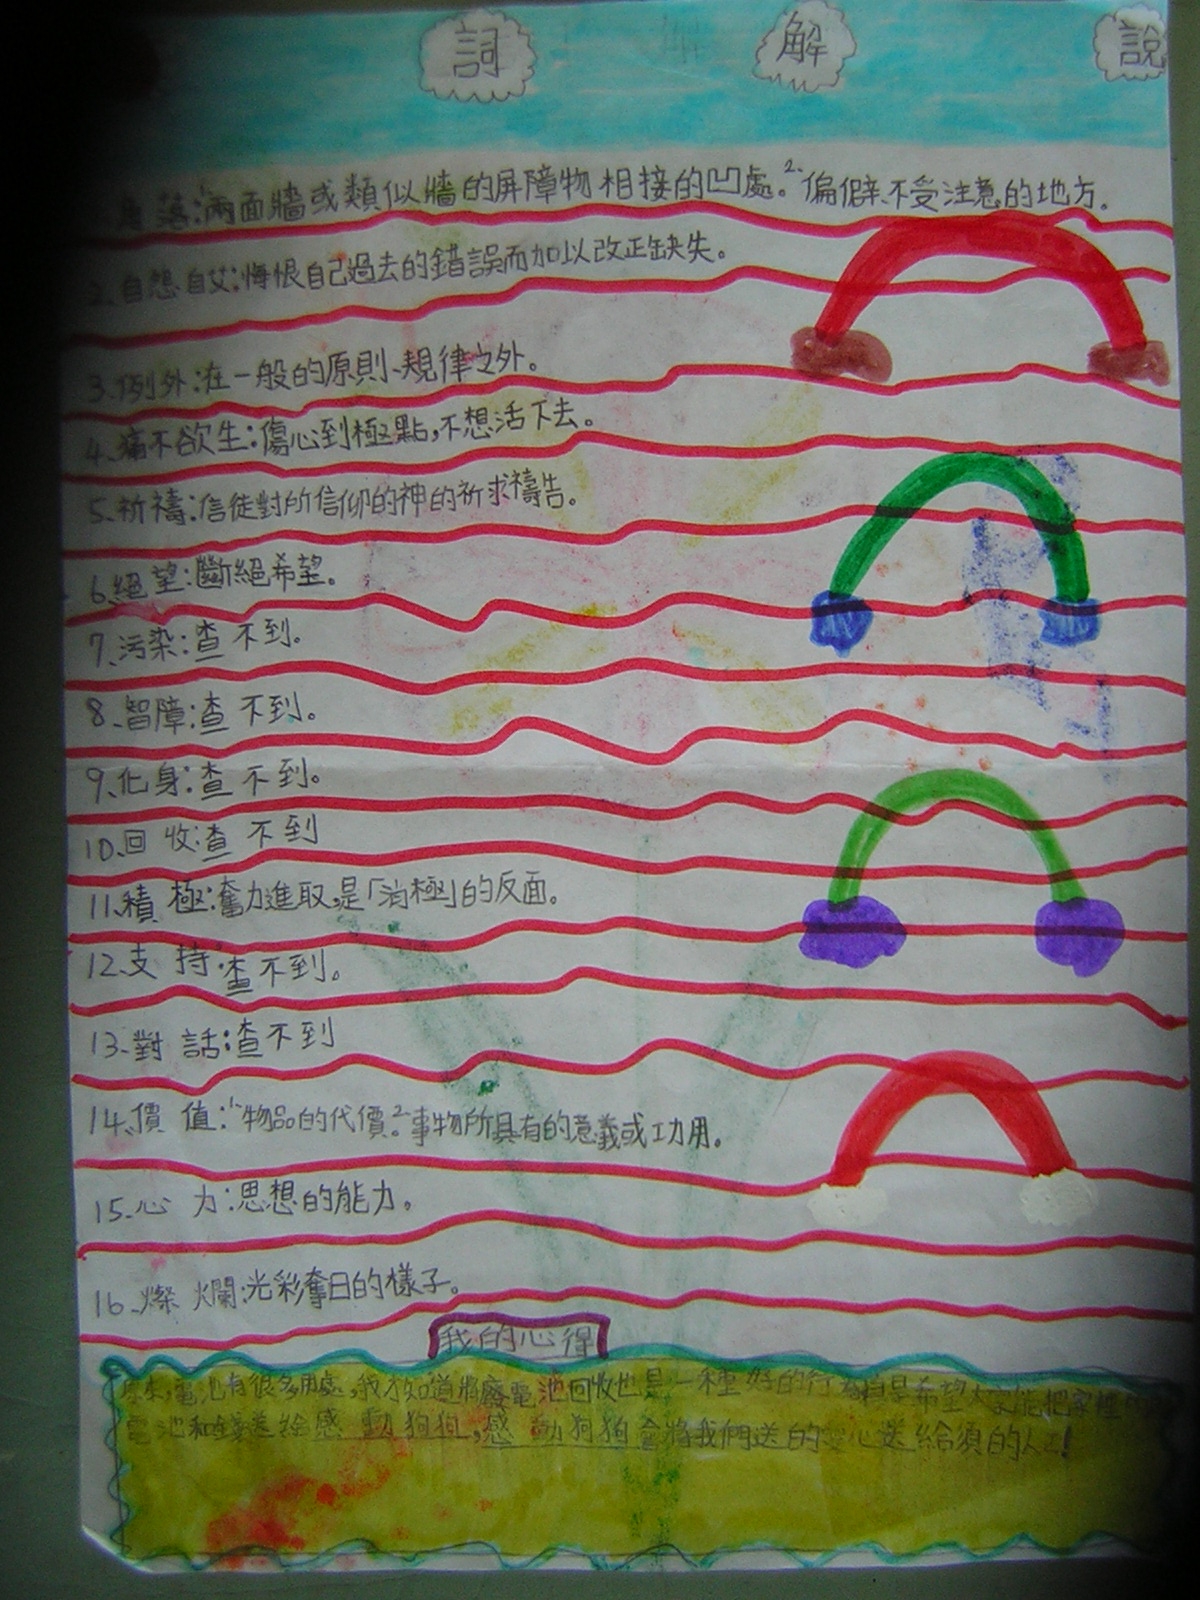 詞 解 說
落:1.兩面牆或類似牆的屏障物相接的凹處。2.偏僻、不受注意的地方。
2.自怨自艾:悔恨自己過去的錯誤而加以改正缺失。
3.例外:在一般的原則、規律之外。
4.痛不欲生:傷心到極點,不想活下去。
5.祈禱:信徒對所信仰的神的祈求禱告。
6.絕望:斷絕希望。
7.污染:查不到。
8.智障:查不到。
9.化身:查不到。
10.回收:查不到
11.積極:奮力進取,是「消極」的反面。
12.支持:查不到。
13.對話:查不到
14.價值:1.物品的代價。2.事物所具有的意義或功用。
15.心力:思想的能力。
16.燦爛:光彩奪目的樣子。
我的心得
電池有很多用處,我才知道將廢電池回收也是一種好的行為,真是希望大家能把家裡
電池和錢送給感動狗狗,感動狗狗會將我們送的愛心送給須的人!